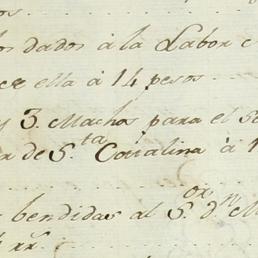 os
los dados à la Labor
cer ella à 14 pesos
y 3. Machos para el
de S.ta Catalina à
bendidas al S.or d.n M
rr.s